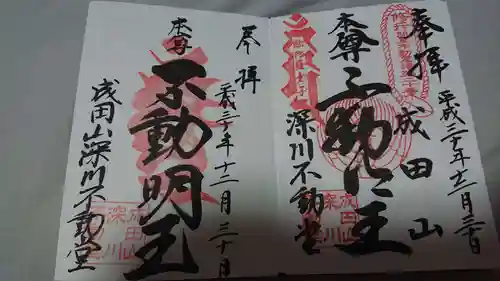 奉拝
平成三十年十二月三十日
成田山
本尊
不動明王
深川不動堂
成田山
深川
奉拝
平成三十年十二月三十日
本尊
不動明王
成田山深川不動堂
成田山
深川